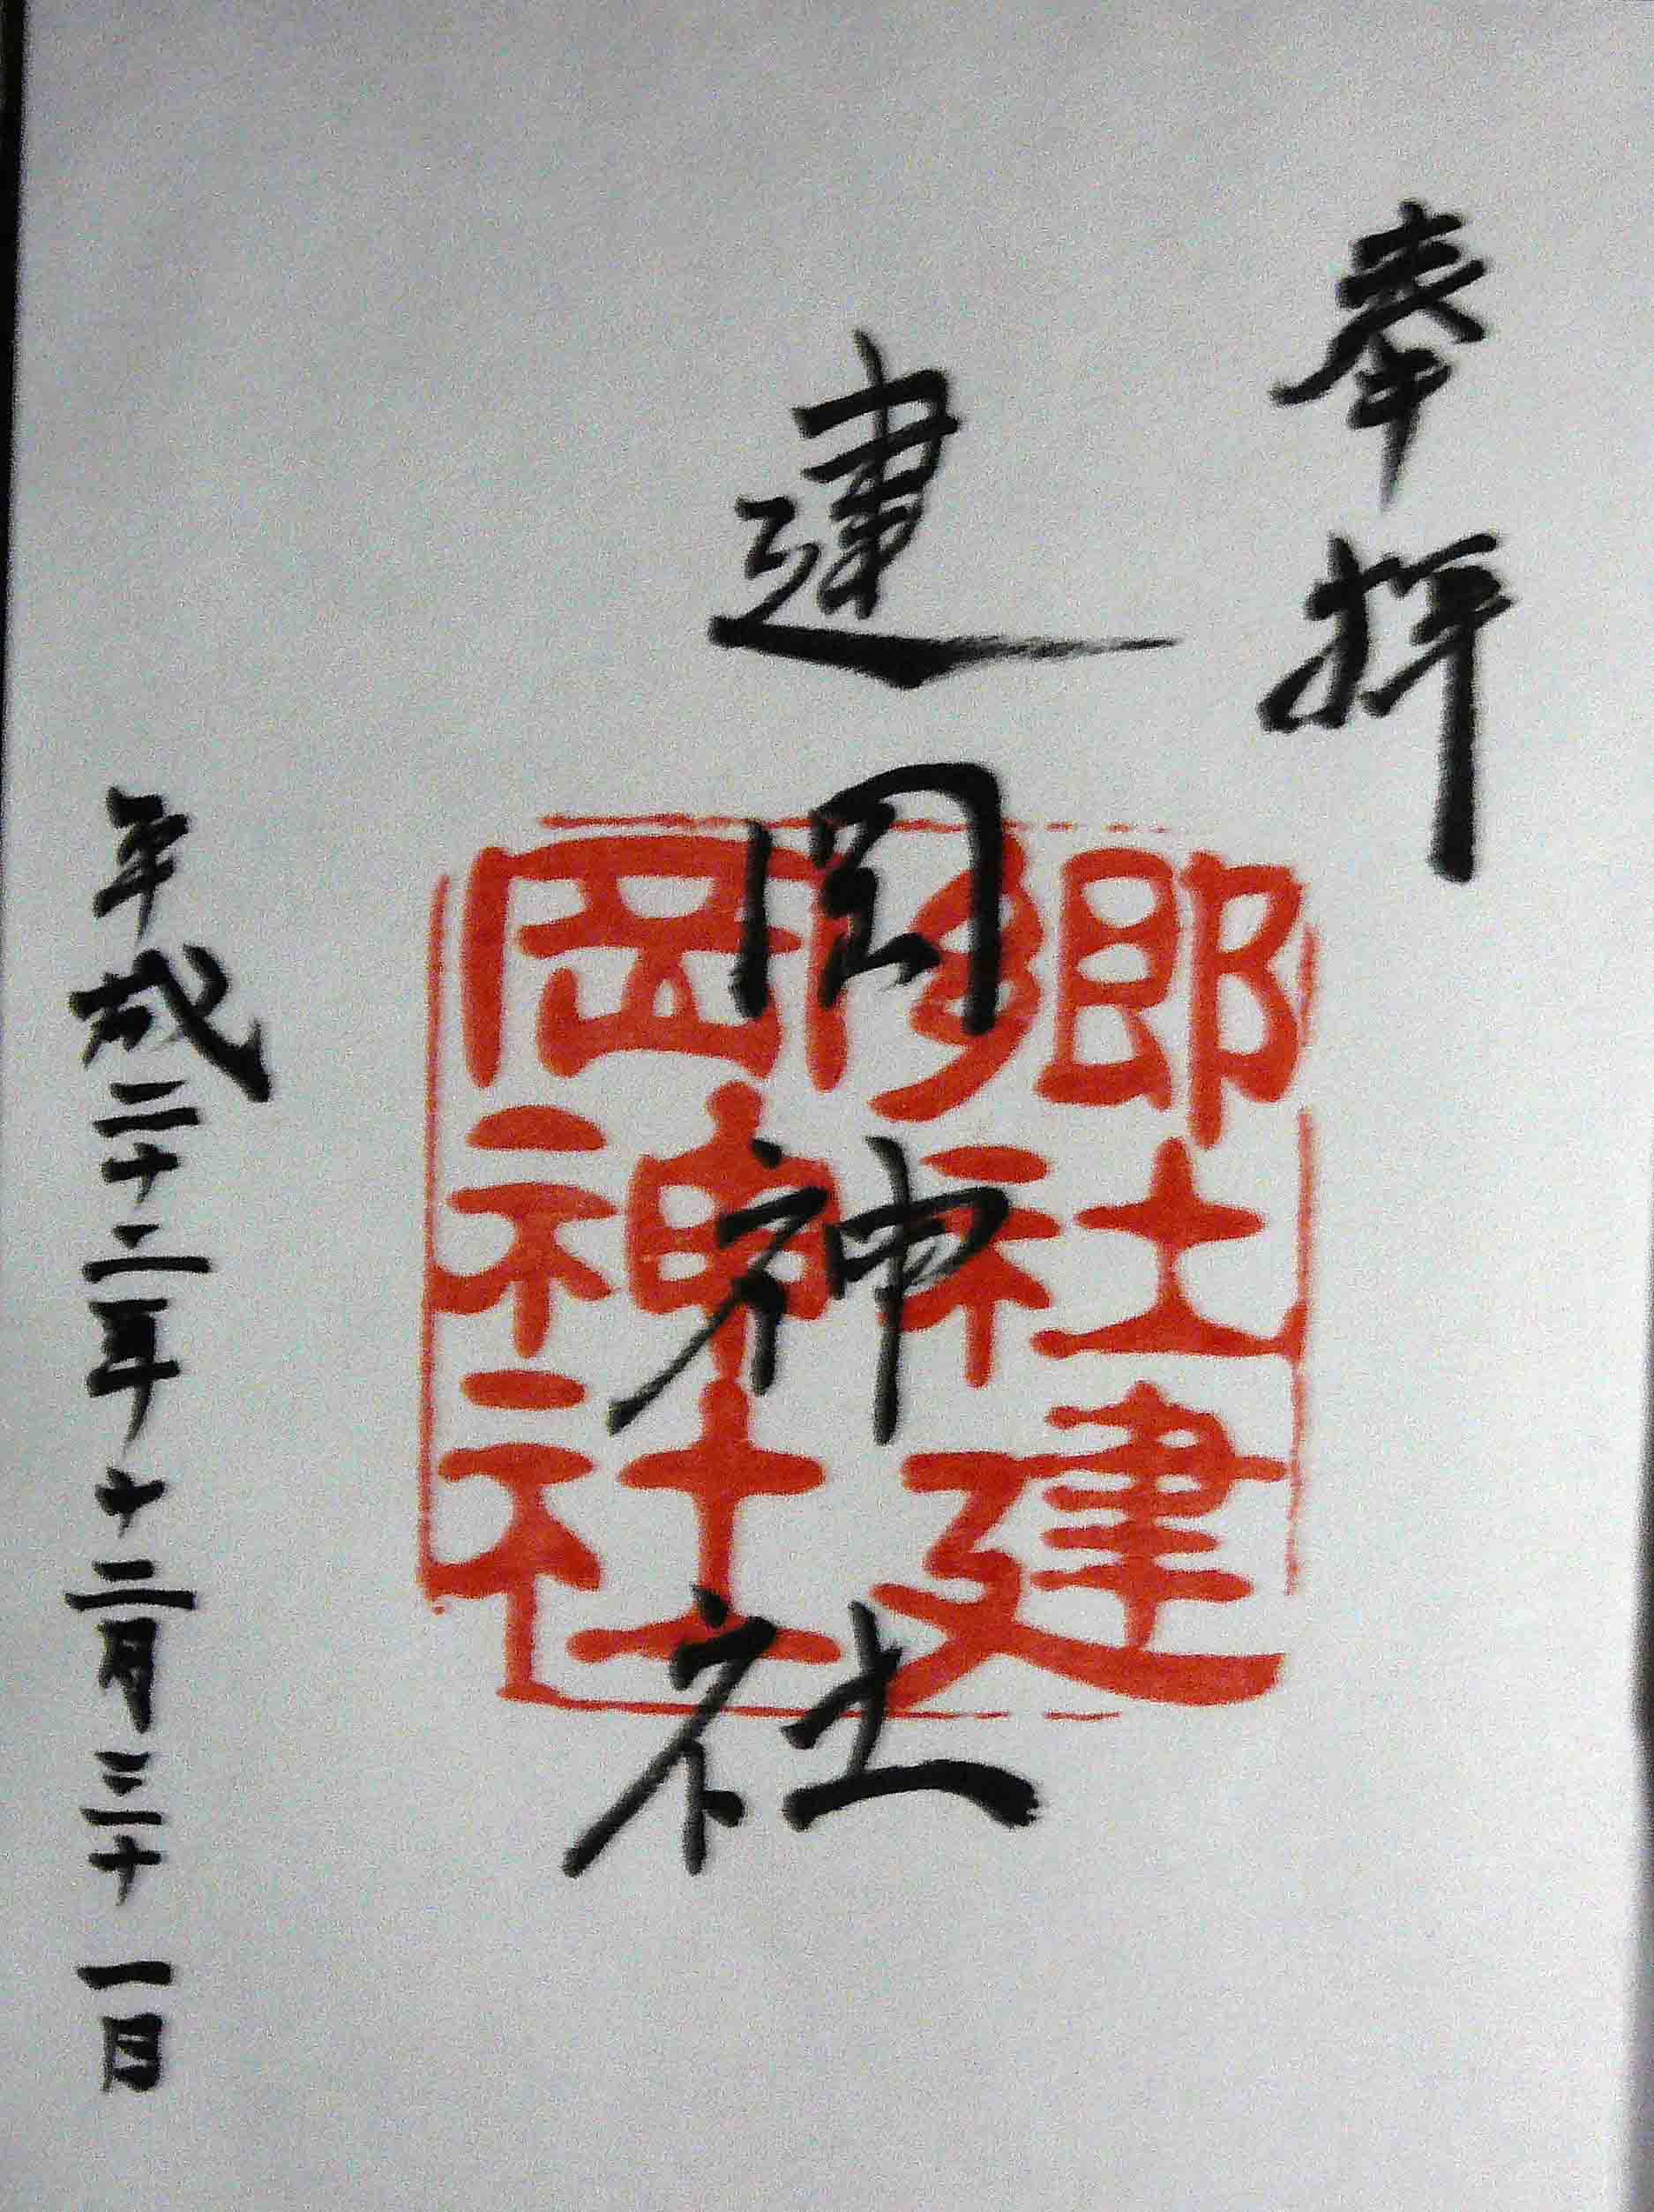 奉拝
建岡神社
郷社建
岡神社
平成二十二年十二月三十一日